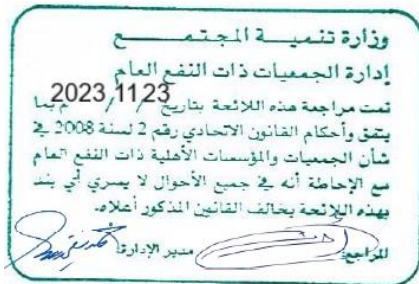 وزارة تنميــة المجتمــــع
إدارة الجمعيات ذات النفع العام
تمت مراجعة هذه اللائحة بتاريخ 2023 11 23 / / م بما
يتفق وأحكام القانون الاتحادي رقم 2 لسنة 2008 في
شأن الجمعيات والمؤسسات الأهلية ذات النفع العام
مع الإحاطة أنه في جميع الأحوال لا يسري أي بند
بهذه اللائحة يخالف القانون المذكور أعلاه.
المراجع: مدير الإدارة: